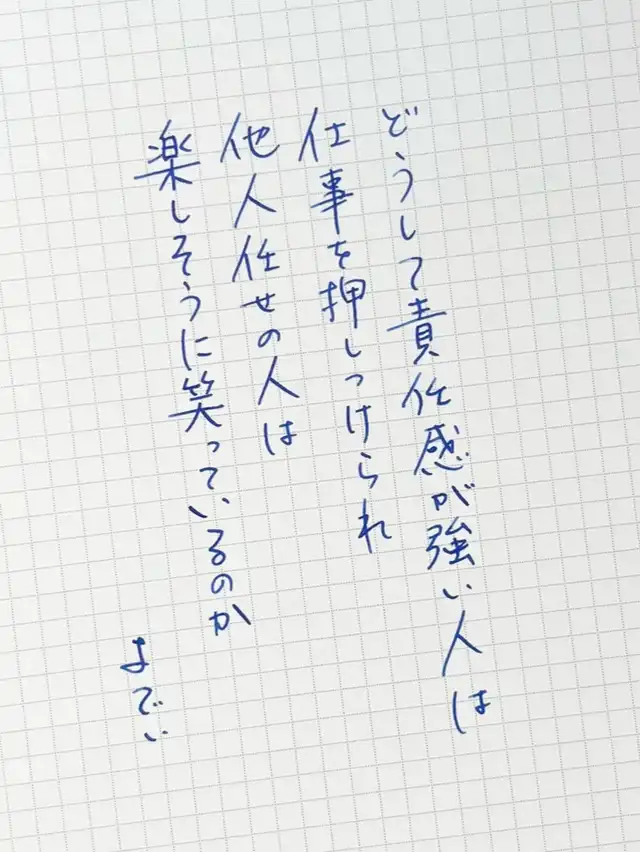 どうして責任感が強い人は
仕事を押しつけられ
他人任せの人は
楽しそうに笑っているのか
よでい